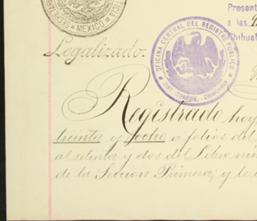 MEXICO
Present
a las 9
Chihuah
Legalizado.
OFICINA CENTRAL DEL REGISTRO PUBLICO
Registrado hoy
treinta y ocho a fojas del
al setenta y dos del Libro
de la Seccion Primera, y